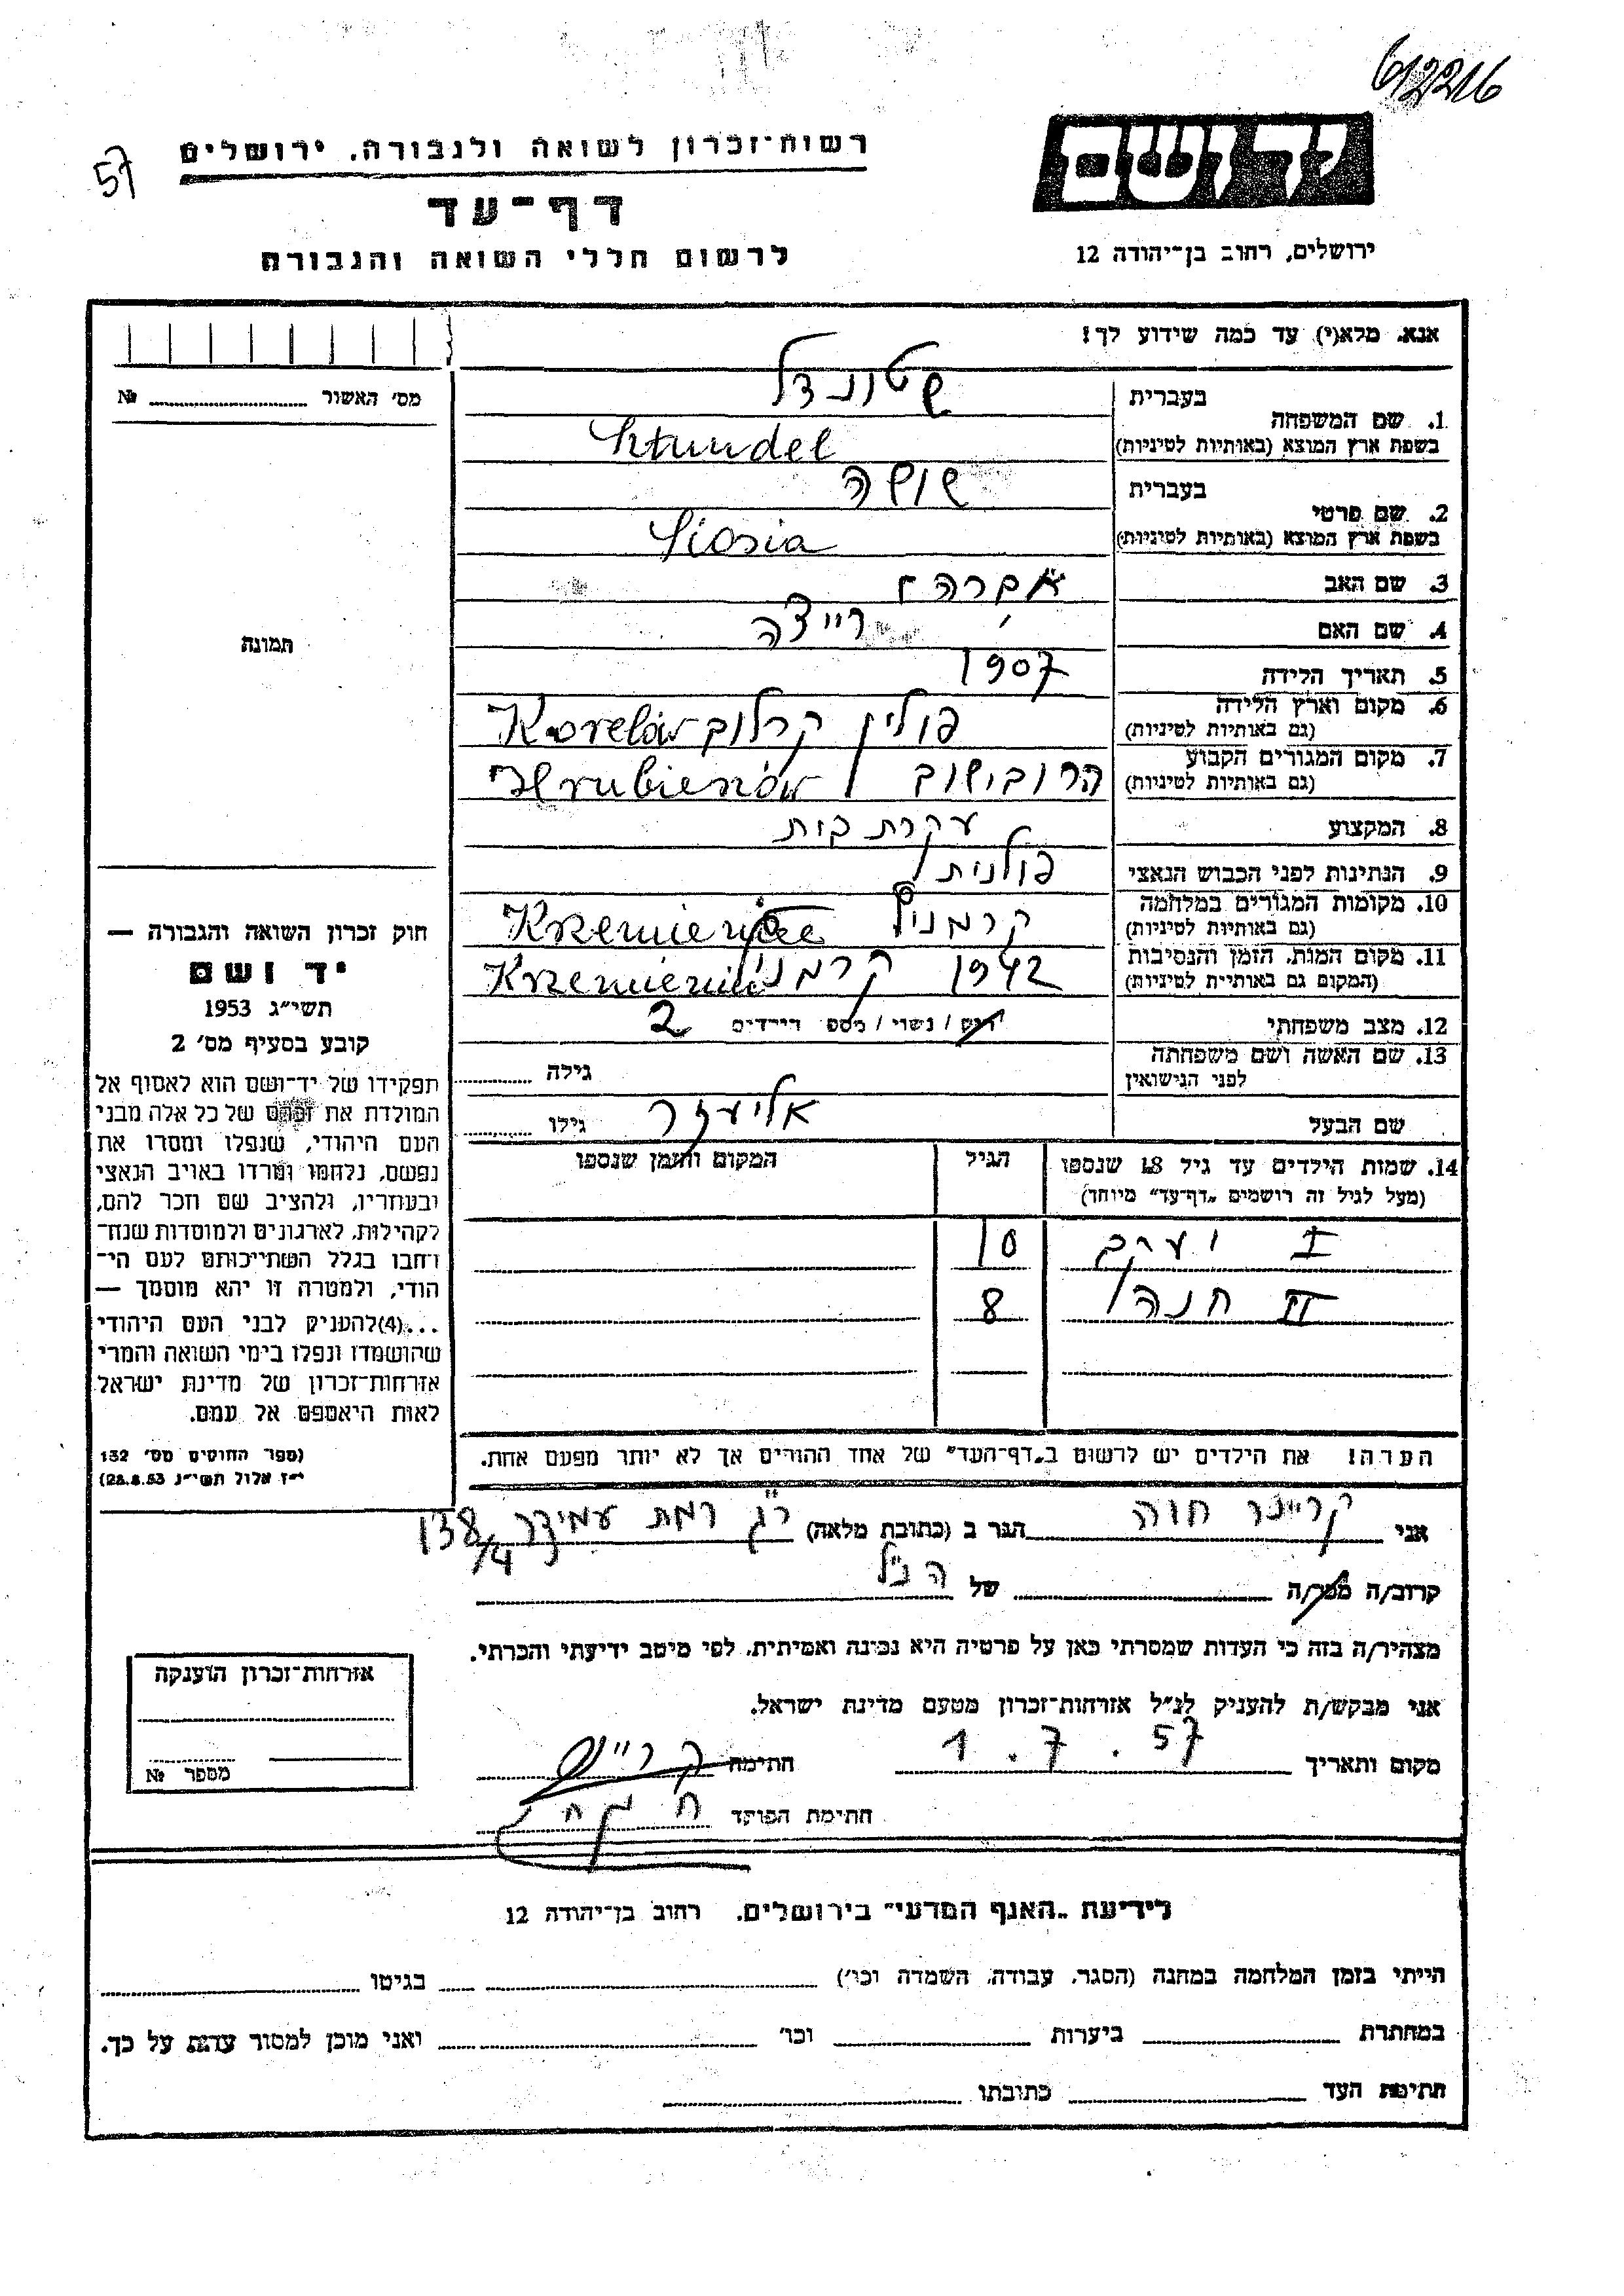 612216
57
רשות־זכרון לשואה ולגבורה. ירושלים
דף־עד
לרשום חללי השואה והגבורה
יד ושם
ירושלים, רחוב בן־יהודה 12
אנא. מלא(י) עד כמה שידוע לך!
מס׳ האשור № 
תמונה
בעברית שטונדל
1. שם המשפחה
בשפת ארץ המוצא (באותיות לטיניות) Sztundel
בעברית שושה
2. שם פרטי
בשפת ארץ המוצא (באותיות לטיניות) Siosia
3. שם האב אברהם
4. שם האם רייצה
5. תאריך הלידה 1907
6. מקום וארץ הלידה פולין קרלוב
(גם באותיות לטיניות)
7. מקום המגורים הקבוע הרובישוב Hrubieszów
(גם באותיות לטיניות)
8. המקצוע עקרת בית
9. הנתינות לפני הכבוש הנאצי פולנית
10. מקומות המגורים במלחמה
(גם באותיות לטיניות)
11. מקום המות. הזמן והנסיבות 1942
(המקום גם באותיות לטיניות)
12. מצב משפחתי רוק / נשוי / מספר הילדים 2
13. שם האשה ושם משפחתה
לפני הנישואין גילה
שם הבעל אליעזר גילו
14. שמות הילדים עד גיל 18 שנספו הגיל המקום והזמן שנספו
(מעל לגיל זה רושמים „דף־עד״ מיוחד)
I יעקב 10
II חנה 8
הערה! את הילדים יש לרשום ב„דף־העד״ של אחד ההורים אך לא יותר מפעם אחת.
חוק זכרון השואה והגבורה —
יד ושם
תשי״ג 1953
קובע בסעיף מס׳ 2
תפקידו של יד־ושם הוא לאסוף אל
המולדת את זכרם של כל אלה מבני
העם היהודי, שנפלו ומסרו את
נפשם, נלחמו ומרדו באויב הנאצי
ובעוזריו, ולהציב שם וזכר להם,
לקהילות, לארגונים ולמוסדות שנח־
רחבו בגלל השתייכותם לעם הי־
הודי, ולמטרה זו יהא מוסמך —
...(4) להעניק לבני העם היהודי
שהושמדו ונפלו בימי השואה והמרי
אזרחות־זכרון של מדינת ישראל
לאות היאספם אל עמם.
(ספר החוקים מס׳ 132
י״ז אלול תשי״ג 28.8.53)
אני קריינר חוה הגר ב (כתובת מלאה) ר״ג רמת עמידר 138/4
קרוב/ה מכר/ה של הנ״ל
מצהיר/ה בזה כי העדות שמסרתי כאן על פרטיה היא נכונה ואמיתית. לפי מיטב ידיעתי והכרתי.
אני מבקש/ת להעניק לנ״ל אזרחות־זכרון מטעם מדינת ישראל.
מקום ותאריך 1.7.57 חתימה
חתימת הפוקד
אזרחות־זכרון הוענקה
מספר №
לידיעת „האגף המדעי״ בירושלים. רחוב בן־יהודה 12
הייתי בזמן המלחמה במחנה (הסגר. עבודה. השמדה וכו׳) בגיטו
במחתרת ביערות וכו׳ ואני מוכן למסור עדות על כך.
חתימת העד כתובתו